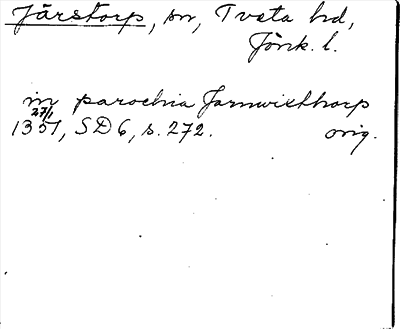 Järstorp, sn, Tveta hd,
Jönk. l.
in parochia Jarnwixthorp
27/1
1351, SD 6, s. 272. orig.